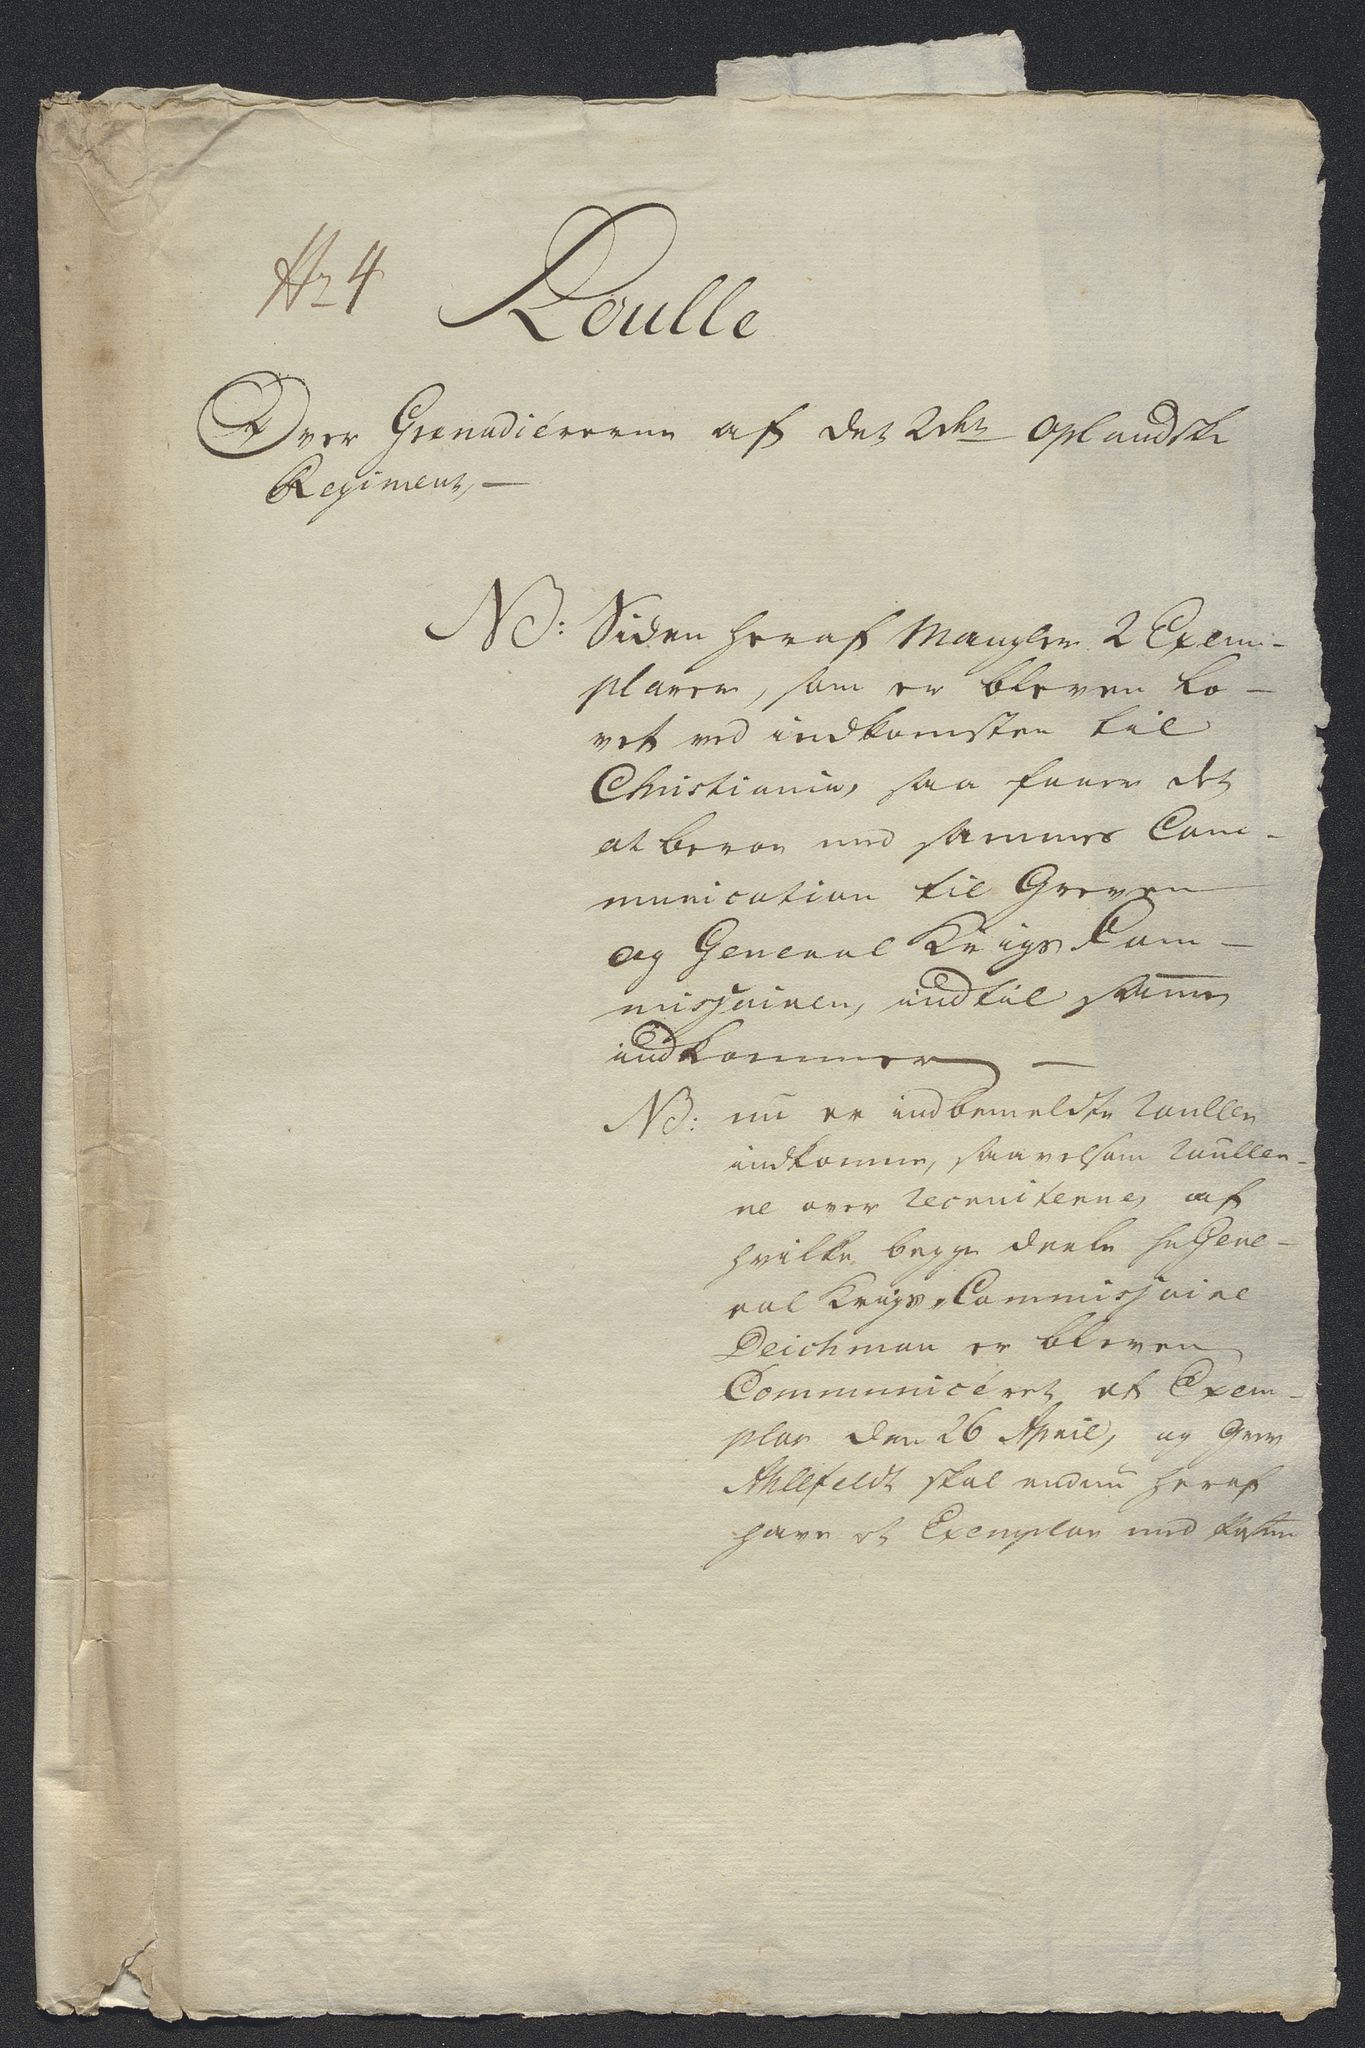 No 4
Roulle
Over Grenadiererne af det 2det Oplandske
Regiment, —
NB: Siden heraf Mangler 2 Exem-
plarer, som er bleven lo-
vet ved indkomsten til
Christiania, saa faaer det
at beroe med sammes Com-
munication til Greven
og General Krigs Com-
missairen, indtil samme
indkommer —
NB: nu er indbemeldte Roulle
indkomne, saavelsom Rouller-
ne over Recruiterne, af
hvilke begge deele hr Gene-
ral Krigs-Commissaire
Deichman er bleven
Communiceret et Exem-
plar den 26 April, og Grev
Ahlefeldt skal endnu heraf
have et Exemplar med